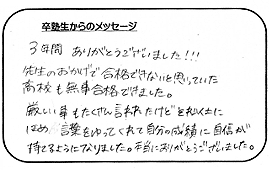 卒塾生からのメッセージ
3年間 ありがとうございました!!!
先生のおかげで合格できないと思っていた
高校も無事合格できました。
厳しい事もたくさん言われたけどそれ以上に
ほめ言葉をゆってくれて自分の成績に自信が
持てるようになりました。本当にありがとうございました。